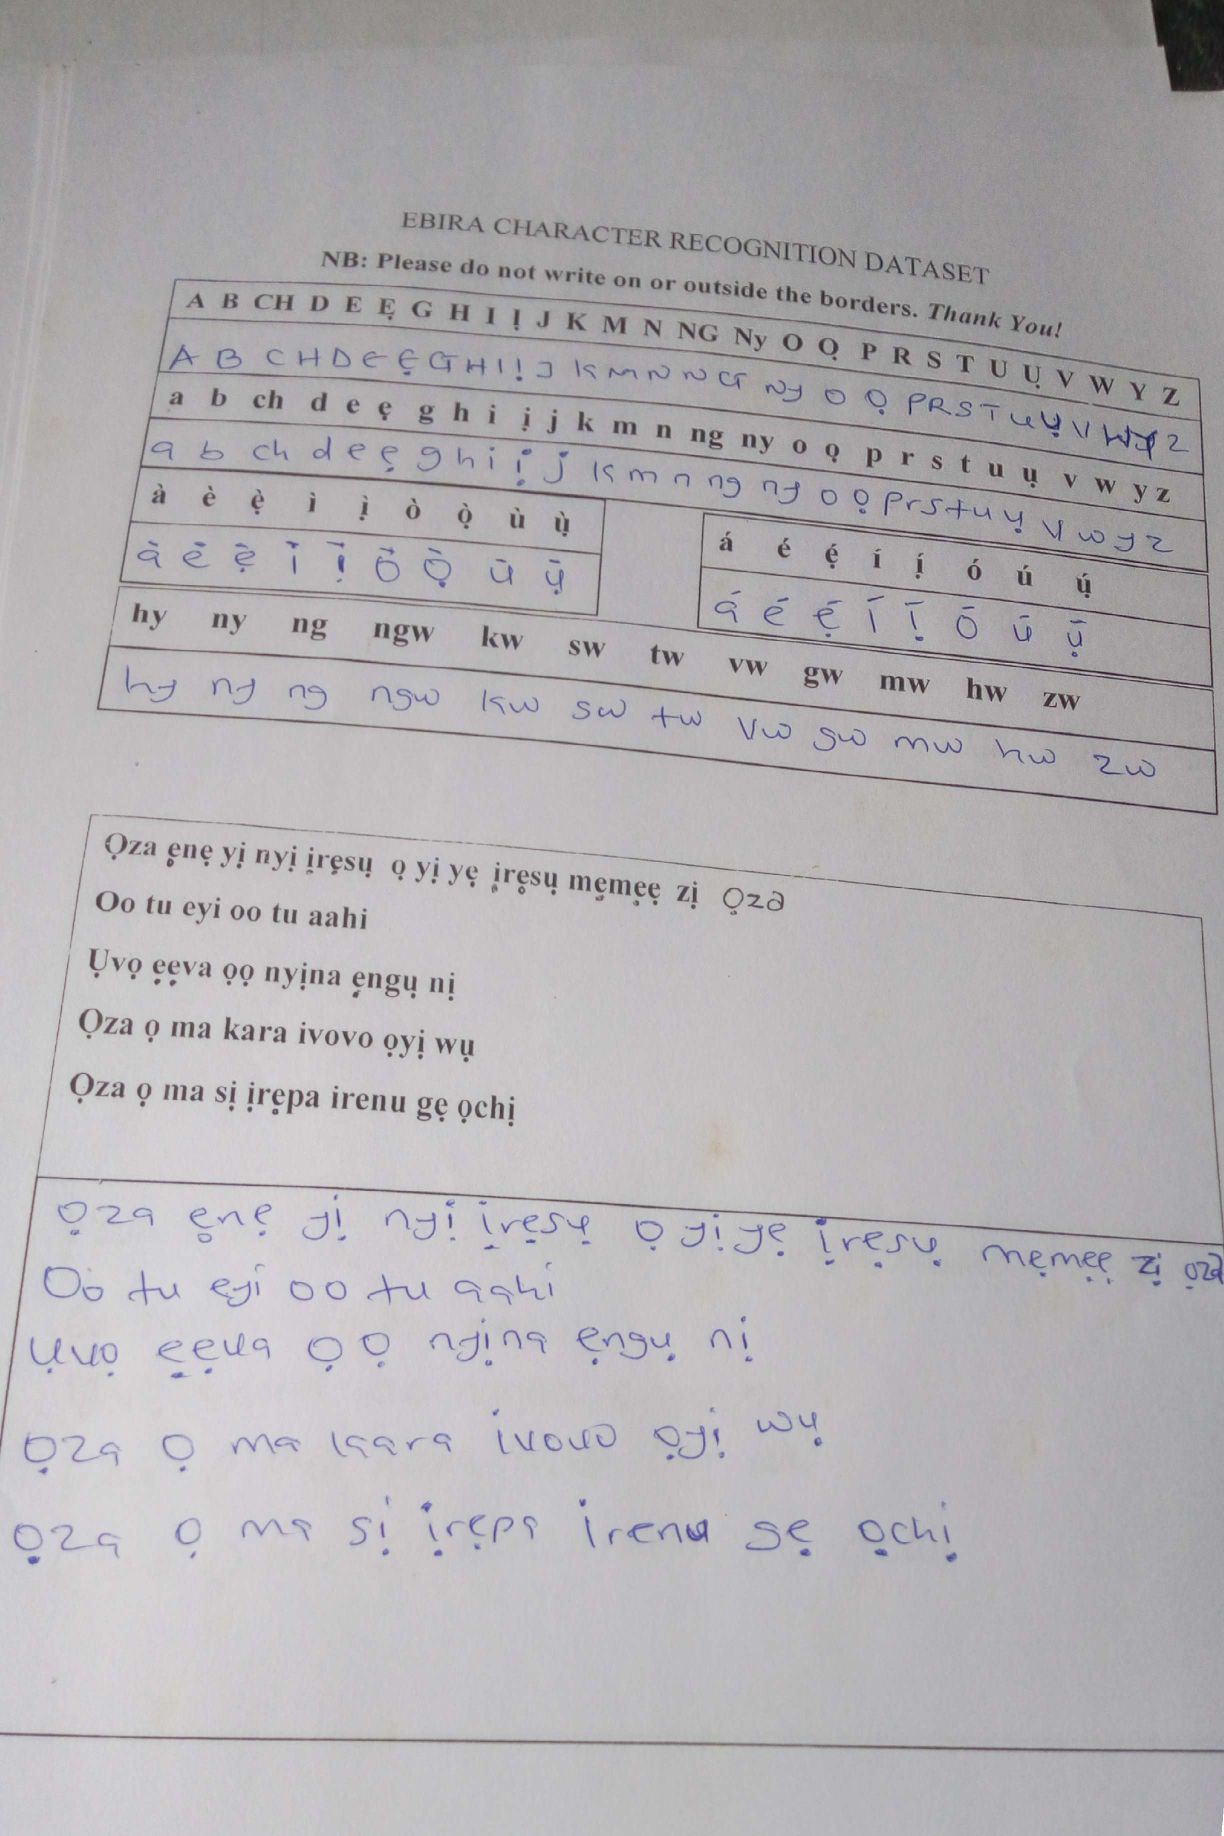 EBIRA CHARACTER RECOGNITION DATASET
NB: Please do not write on or outside the borders. Thank You!
A B CH D E Ẹ G H I Ị J K M N NG Ny O Ọ P R S T U Ụ V W Y Z
A B C H D E Ẹ G H I Ị J K M N N G ny O Ọ P R S T U Ụ V W Y Z
a b ch d e ẹ g h i ị j k m n ng ny o ọ p r s t u ụ v w y z
a b ch d e ẹ g h i ị j k m n ng ny o ọ p r s t u ụ v w y z
à è ẹ̀ ì ị̀ ò ọ̀ ù ụ̀
à è ẹ̀ ì ị̀ ò ọ̀ ù ụ̀
á é ẹ́ í ị́ ó ú ụ́
á é ẹ́ í ị́ ó ú ụ́
hy ny ng ngw kw sw tw vw gw mw hw zw
hy ny ng ngw kw sw tw vw gw mw hw zw
Ọza ẹnẹ yị nyị ịrẹsụ ọ yị yẹ ịrẹsụ mẹmẹẹ zị Ọza
Oo tu eyi oo tu aahi
Ụvọ ẹẹva ọọ nyịna ẹngụ nị
Ọza ọ ma kara ivovo ọyị wụ
Ọza ọ ma sị ịrẹpa irenu gẹ ọchị
Ọza ẹnẹ yị nyị ịrẹsụ ọ yị yẹ ịrẹsụ mẹmẹẹ zị ọza
Oo tu eyi oo tu aahi
Ụvọ ẹẹva ọ ọ nyịna ẹngụ nị
Ọza ọ ma kara ivovo ọyị wụ
Ọza ọ ma sị ịrẹpa irenu gẹ ọchị